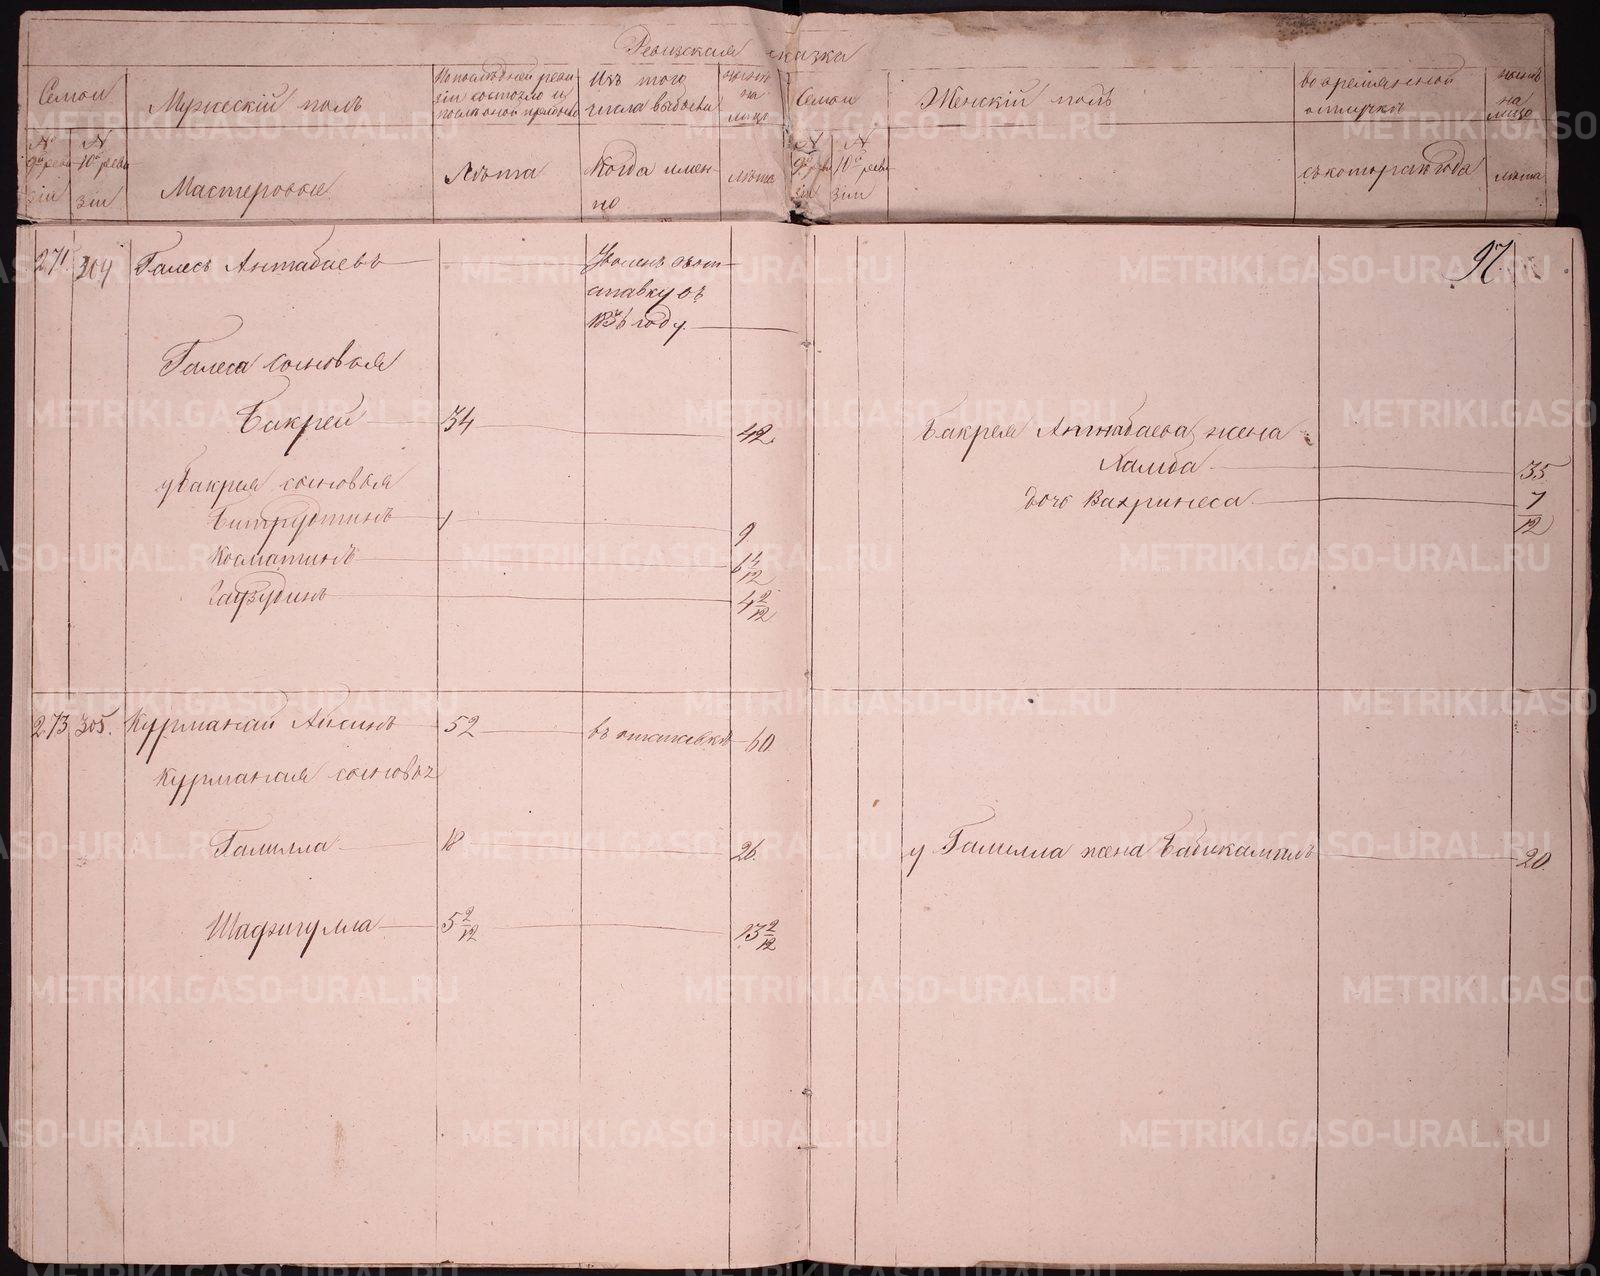 Ревизская сказка
Семьи
Мужескій полъ
По последней реви-
зіи состояло и
после оной прибыло
Изъ того
числа выбыло
ныне
на
лицо
Семьи
Женскій полъ
во временной
отлучке
ныне
на
лицо
№ 9й ревизіи
№ 10й ревизіи
Мастеровые
Лѣта
Когда имен-
но
лѣта
№ 9й ревизіи
№ 10й ревизіи
съ котораго года
лѣта
271. 304 Галесъ Антабаевъ
Уволенъ въ от-
ставку въ
1856 году.
97
Галеса сыновья
Бакрей 34 42.
Бакрея Антабаева жена
Халиба 35.
у Бакрея сыновья
дочь Вахринеса 7/12
Битрутинъ 1 9
Косматинъ 6 4/12
Гаузудинъ 4 2/12
273 305. Курманай Аисинъ 52 въ отставке 60
Курманая сыновья
Галилла 18 26.
у Галилла жена Бабикамалъ 20.
Шафигулла 5 2/12 13 2/12
METRIKI.GASO-URAL.RU